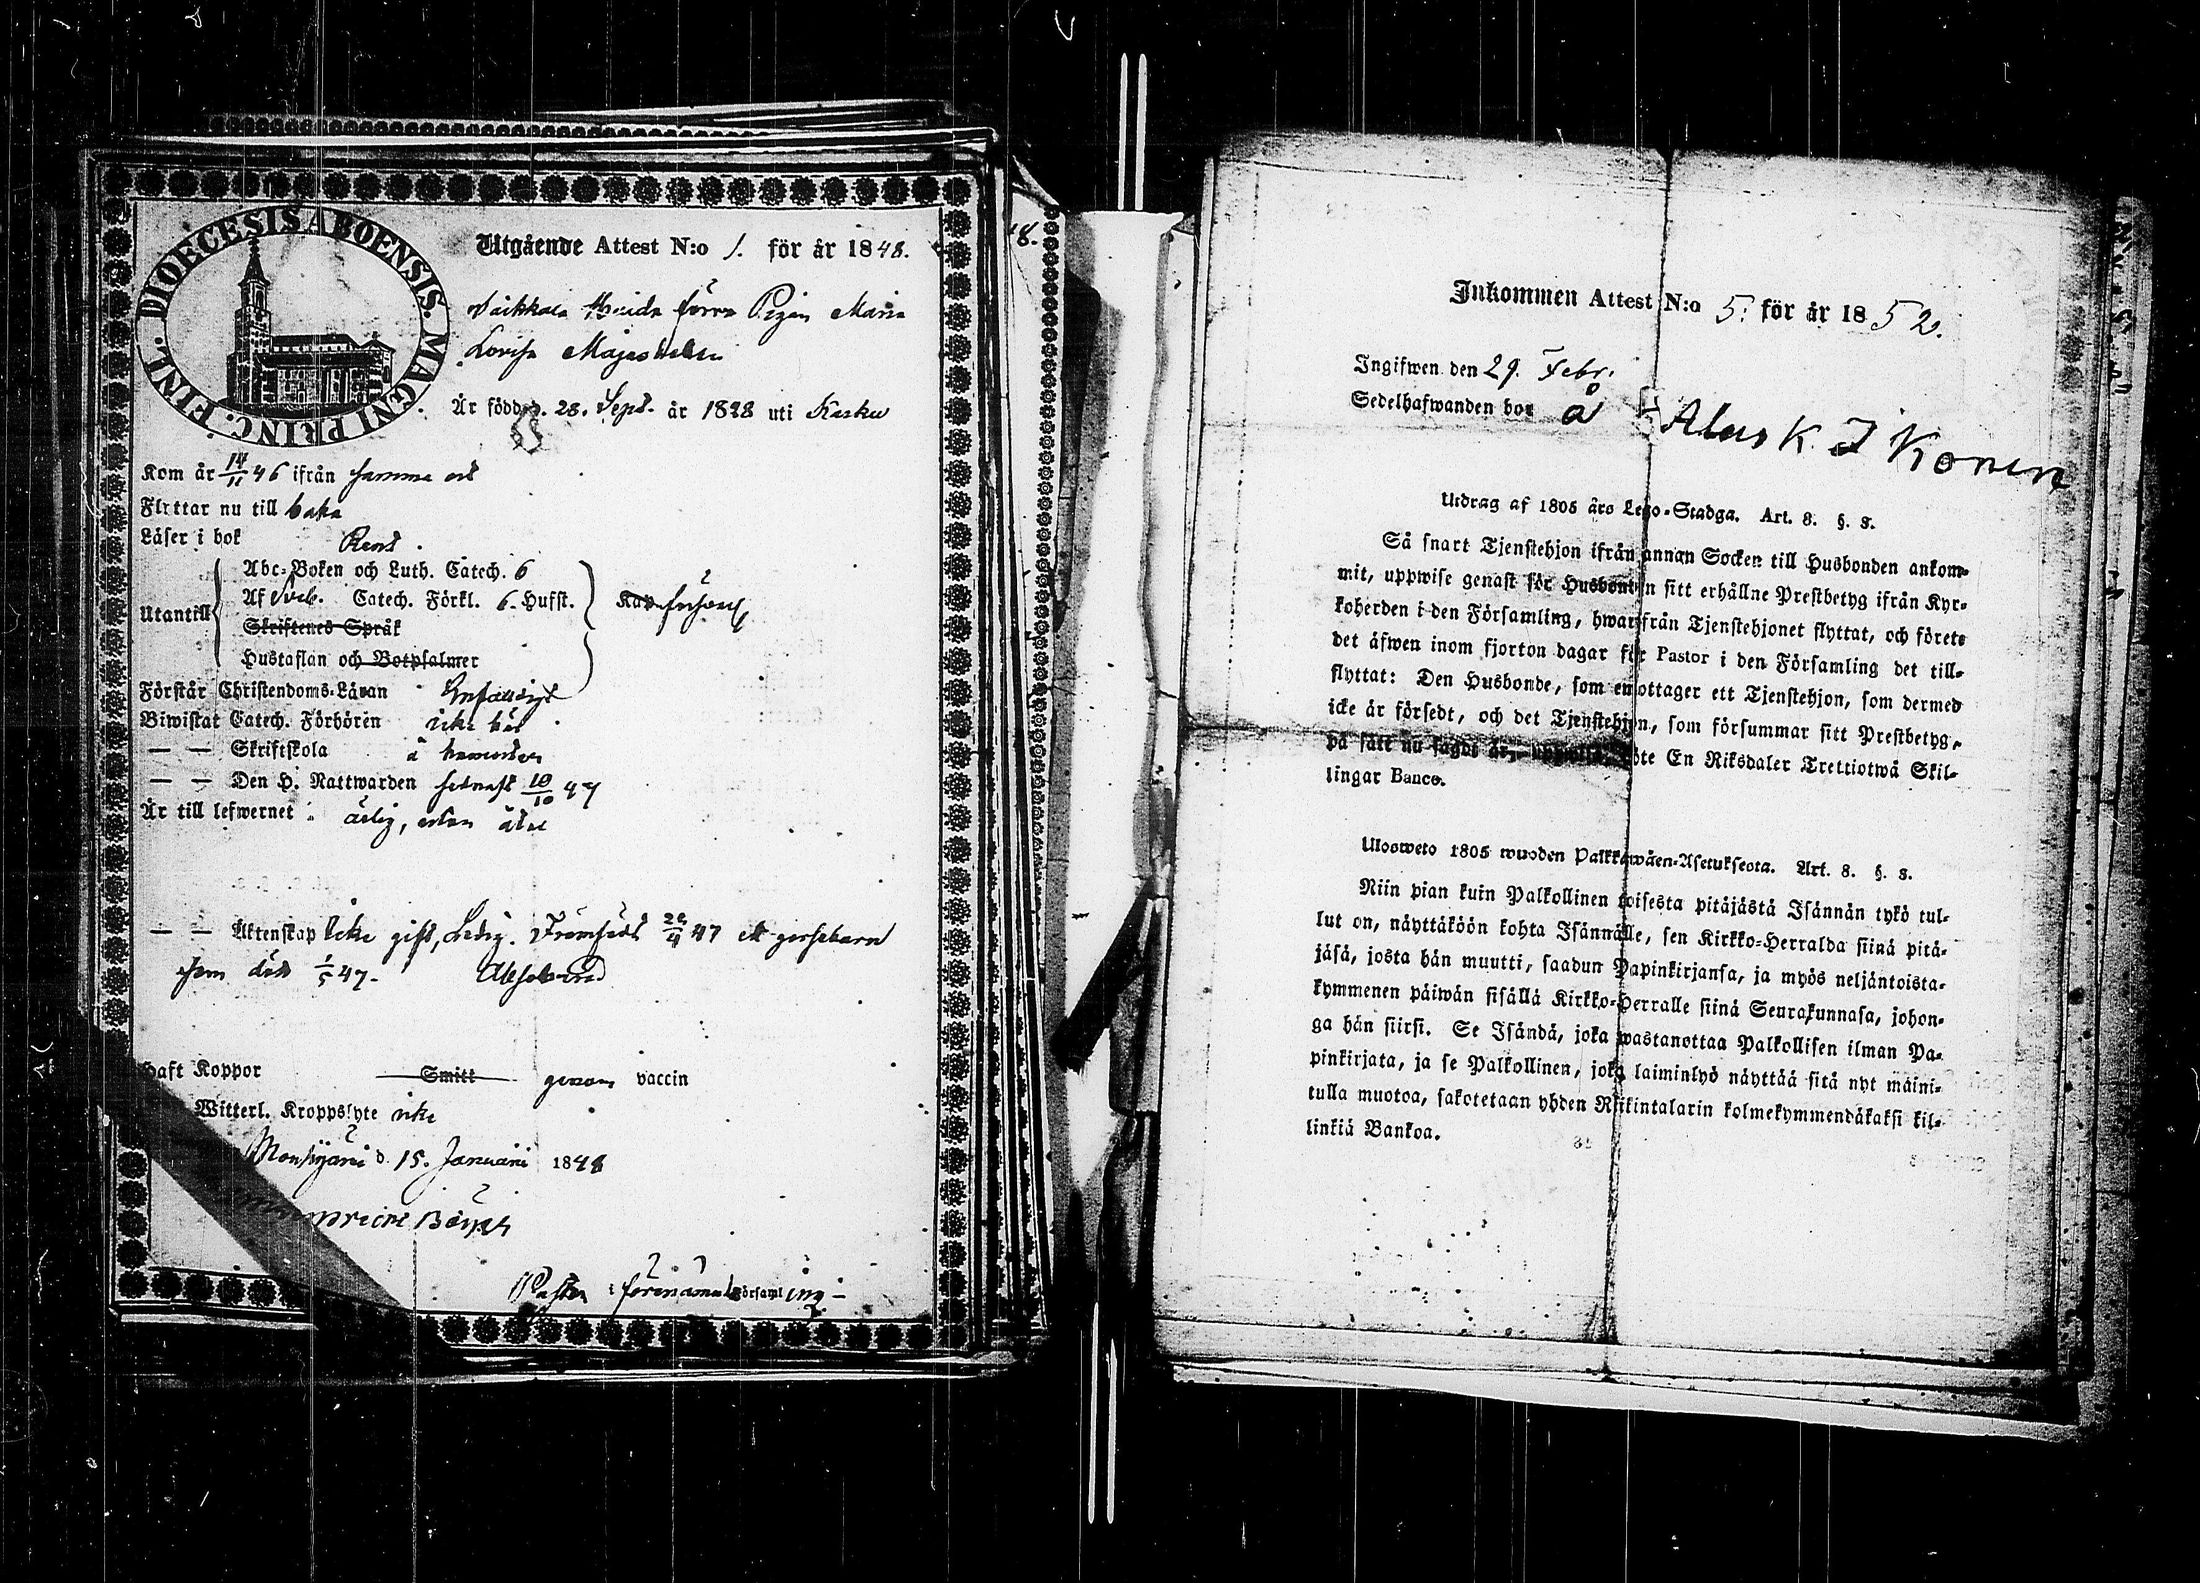 DIOECESIS ABOENSIS. MAGNI PRINC. FINL.
Utgående Attest N:o 1. för år 1848.
förra Pigan Maria
Lovisa
Är född d. 28. Sept. år 1828 uti Karku
Kom år 14/11 46 ifrån samma ort
Flyttar nu till baka
Läser i bok Rent.
Utantill
Abc-Boken och Luth. Catech. 6
Af Sveb. Catech. Förkl. 6. Hufst.
Skriftenes Språk
Hustaflan och Botpsalmer
Förstår Christendoms-Läran Enfaldigt
Biwistat Catech. Förhören icke här
— — Skriftskola å
— — Den H. Nattwarden sednast 10/10 47
Är till lefwernet ärlig, utan
— — Äktenskap Icke gift, Ledig. Framfödt 4 47 ett gossebarn
som dött 1/5 47. Absolverad
haft Koppor Smitt genom vaccin
Witterl. Kroppslyte icke
Mouhijärvi d. 15. Januarii 1848
Pastor i förenämnde Församling
Inkommen Attest N:o 5. för år 1852.
Ingifwen den 29. Febr.
Sedelhafwanden bor å
Utdrag af 1805 års Lego-Stadga. Art. 8. §. 8.
Så snart Tjenstehjon ifrån annan Socken till Husbonden ankom-
mit, uppwise genast för Husbonden sitt erhållne Prestbetyg ifrån Kyr-
koherden i den Församling, hwarifrån Tjenstehjonet flyttat, och förete
det äfwen inom fjorton dagar för Pastor i den Församling det till-
flyttat: Den Husbonde, som emottager ett Tjenstehjon, som dermed
icke är försedt, och det Tjenstehjon, som försummar sitt Prestbetyg,
på sätt nu sagdt är, uppwisa, böte En Riksdaler Trettiotwå Skil-
lingar Banco.
Ulosweto 1805 wuoden Palkkawäen-Asetuksesta. Art. 8. §. 8.
Niin pian kuin Palkollinen toisesta pitäjästä Isännän tykö tul-
lut on, näyttäköön kohta Isännälle, sen Kirkko-Herralda siinä pitä-
jäsä, josta hän muutti, saadun Papinkirjansa, ja myös neljäntoista-
kymmenen päiwän sisällä Kirkko-Herralle siinä Seurakunnasa, johon-
ga hän siirsi. Se Isändä, joka wastanottaa Palkollisen ilman Pa-
pinkirjata, ja se Palkollinen, joka laiminlyö näyttää sitä nyt maini-
tulla muotoa, sakotetaan yhden Riikintalarin kolmekymmendäkaksi kil-
linkiä Bankoa.